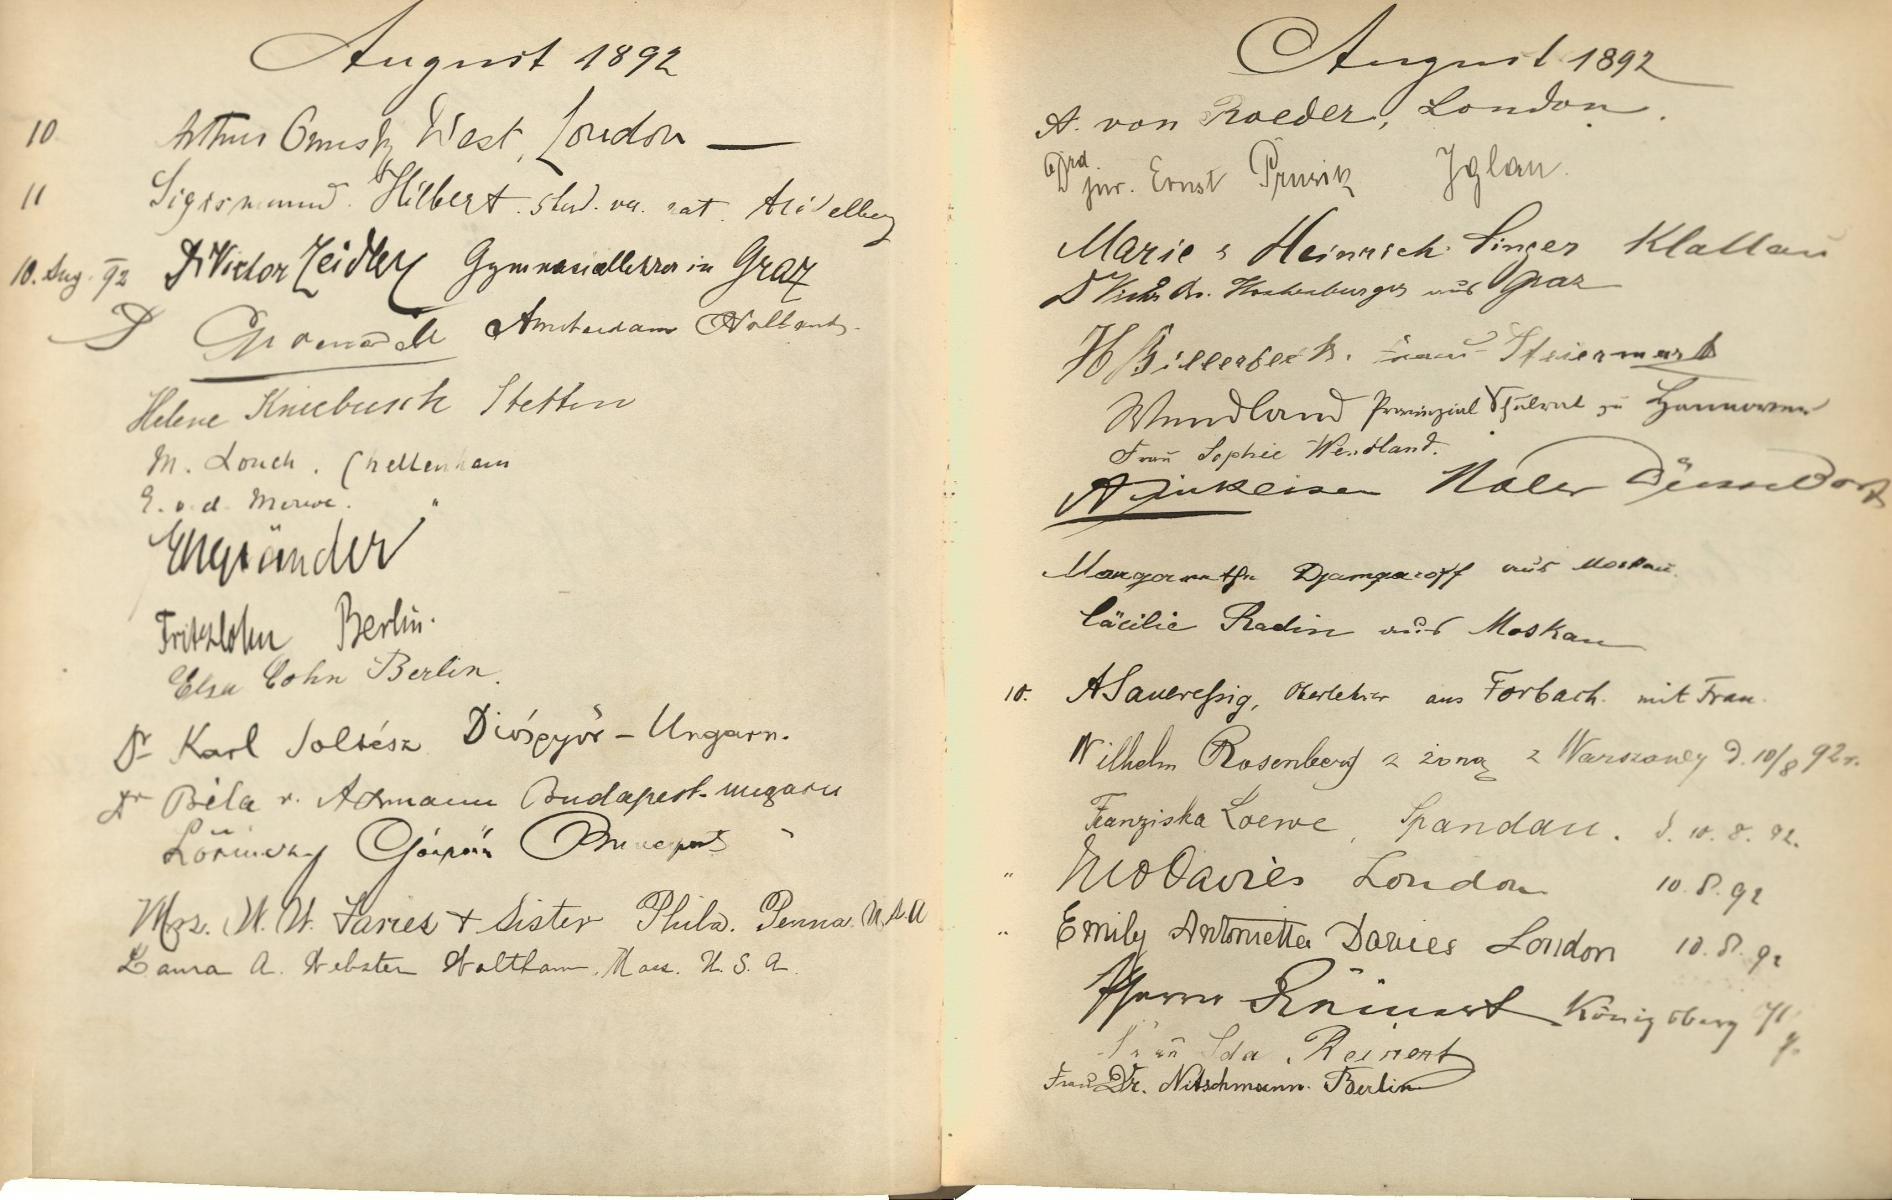 August 1892
10 Arthur West, London
11 Sigismund Hilbert. stud. rer. nat. Heidelberg
10. Aug. 92 Dr Victor Zeidler Gymnasiallehrer in Graz
D Amsterdam Holland
Helene Kniebusch Stettin
M. Louch. Cheltenham
E. v. d. Merwe. "
Engländer
Fritz Cohn Berlin.
Elsa Cohn Berlin.
Dr Karl Soltész Diósgyőr - Ungarn.
Dr Béla v. Budapest. Ungarn
Gáspár Budapest
Mrs. W. W. Faries + Sister Phila. Penna. U.S.A
Laura A. Webster Waltham. Mass. U. S. A.
August 1892
A. von Roeder, London.
jur. Ernst Iglau.
Marie & Heinrich Singer Klattau
aus Graz
H Billerbeck. Steiermark
Wendland Provinzial Schulrat zu Hannover
Frau Sophie Wendland.
A Zinkeisen Maler Düsseldorf
Margarethe Djamgaroff aus Moskau.
Cäcilie Radin aus Moskau
10. A Sauereßig, Oberlehrer aus Forbach. mit Frau.
Wilhelm Rosenberg z żoną z Warszawy d. 10/8 92 r.
Franziska Loewe, Spandau. d. 10. 8. 92.
" Davies London 10.8.92
" Emily Antonietta Davies London 10.8.92
Pfarrer Reinert Königsberg
Frau Ida Reinert
Frau Dr. Nitschmann. Berlin